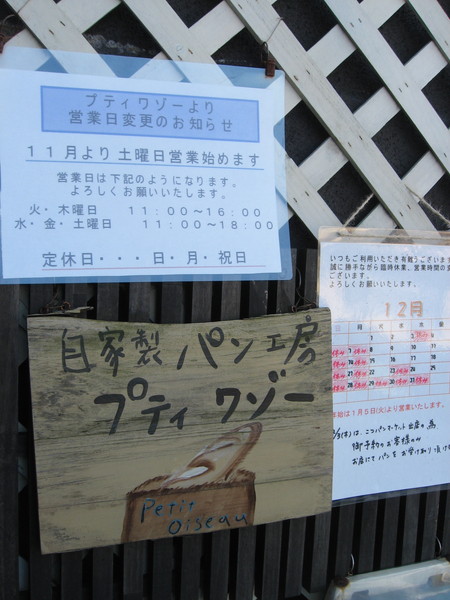 プティワゾーより
営業日変更のお知らせ
11月より土曜日営業始めます
営業日は下記のようになります。
よろしくお願いいたします。
火・木曜日 11:00～16:00
水・金・土曜日 11:00～18:00
定休日・・・日・月・祝日
自家製パン工房
プティワゾー
Petit
Oiseau
いつもご利用いただき有難うございます
誠に勝手ながら臨時休業、営業時間の変
ございます。
よろしくお願いいたします。
12月
年始は1月5日(火)より営業いたします。
御予約のお客様のみ
お店にてパンをお受け取り頂け